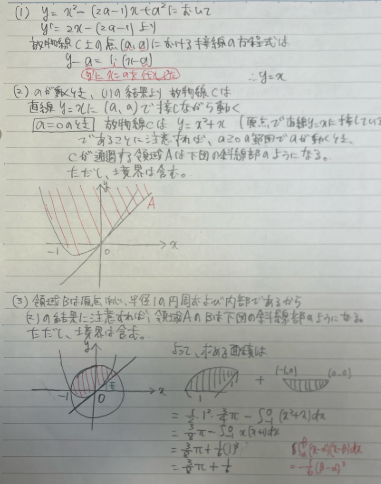 (1) y = x² - (2a-1)x + a² において
y' = 2x - (2a-1) より
放物線C上の点(a, a)における接線の方程式は
y - a = 1・(x-a)
∴ y = x
(2) aが動くとき、(1)の結果より放物線Cは
直線y=xに(a, a)で接しながら動く
a=0のとき 放物線Cは y = x²+x (原点で直線y=xに接している)
であることに注意すれば、a≧0の範囲でaが動くとき、
Cが通過する領域Aは下図の斜線部のようになる。
ただし、境界は含む。
y
A
-1 0 x
(3) 領域Bは原点中心、半径1の円周および内部であるから
(2)の結果に注意すれば、領域AのBは下図の斜線部のようになる。
ただし、境界は含む。
y
よって、求める面積は
-1 0 x
+ (-1,0) (0,0)
= ½・1²・¾π - ∫ (x²+x)dx
= ⅜π - ∫ x(x+1)dx
= ⅜π + ⅙(1)³
= ⅜π + ⅙
∫ (x-α)(x-β)dx
= -⅙(β-α)³